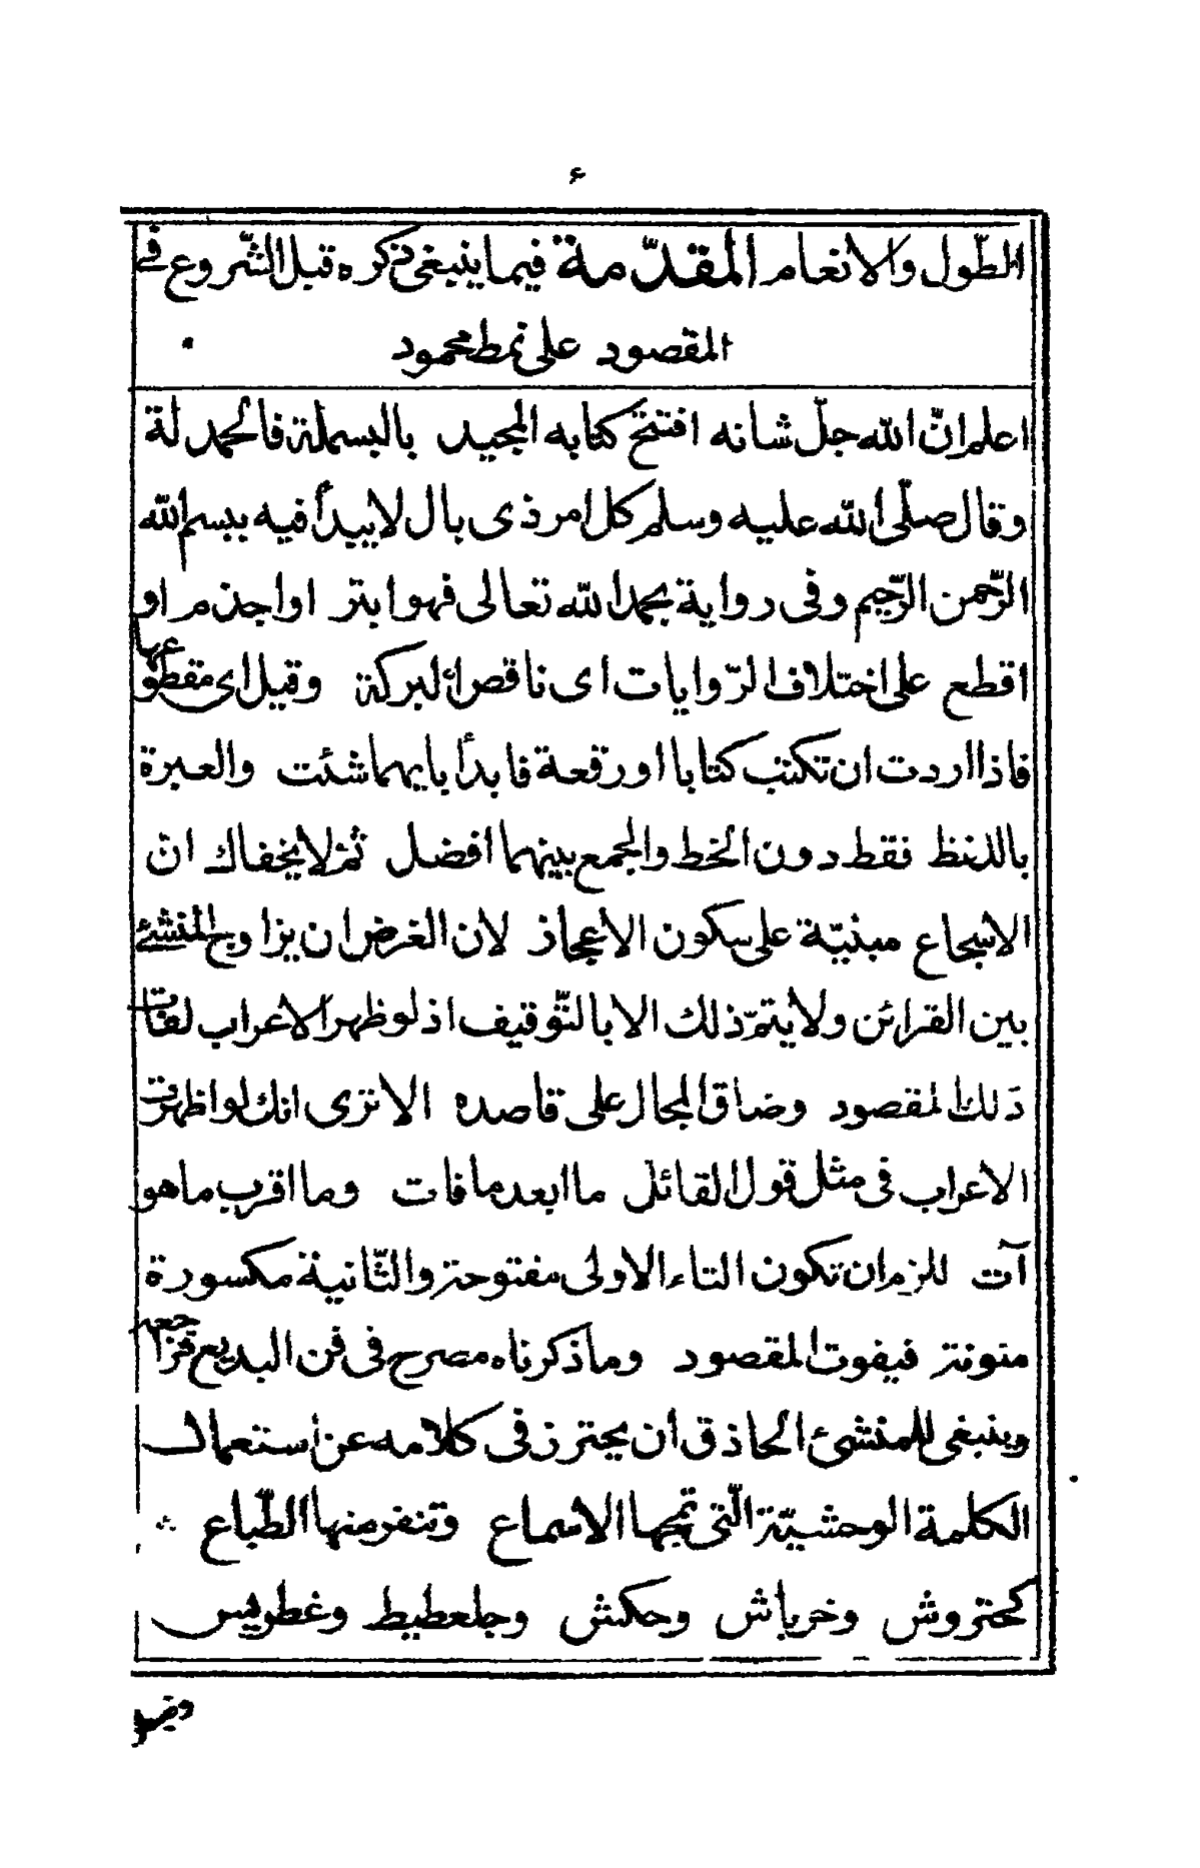 ۶
الطّول والانعام المقدّمة فيما ينبغى ذكره قبل الشّروع فى
المقصود على نمط محمود
اعلم انّ الله جلّ شانه افتتح كتابه المجيد بالبسملة فالحمدلة
وقال صلّى الله عليه وسلم كل امر ذى بال لا يبدأ فيه ببسم الله
الرّحمن الرّحيم وفى رواية بحمد الله تعالى فهو ابتر او اجذم او
اقطع على اختلاف الرّوايات اى ناقص البركة وقيل اى مقطوعها
فاذا اردت ان تكتب كتابا او رقعة فابدأ بايهما شئت والعبرة
باللفظ فقط دون الخط والجمع بينهما افضل ثم لا يخفاك انّ
الاسجاع مبنيّة على سكون الاعجاز لان الغرض ان يزاوج المنشئ
بين القرائن ولا يتمّ ذلك الا بالتّوقيف اذ لو ظهر الاعراب لفات
ذلك المقصود وضاق المجال على قاصده الا ترى انك لو اظهرت
الاعراب فى مثل قول القائل ما ابعد ما فات وما اقرب ما هو
آت للزم ان تكون التاء الاولى مفتوحة والثّانية مكسورة
منونة فيفوت المقصود وما ذكرناه مصرح فى فن البديع فراجعه
وينبغى للمنشئ الحاذق ان يحترز فى كلامه عن استعمال
الكلمة الوحشيّة الّتى تمجها الاسماع وتنفر منها الطّباع
كحتروش وخرباش وحكش وجلعطيط وغطريس